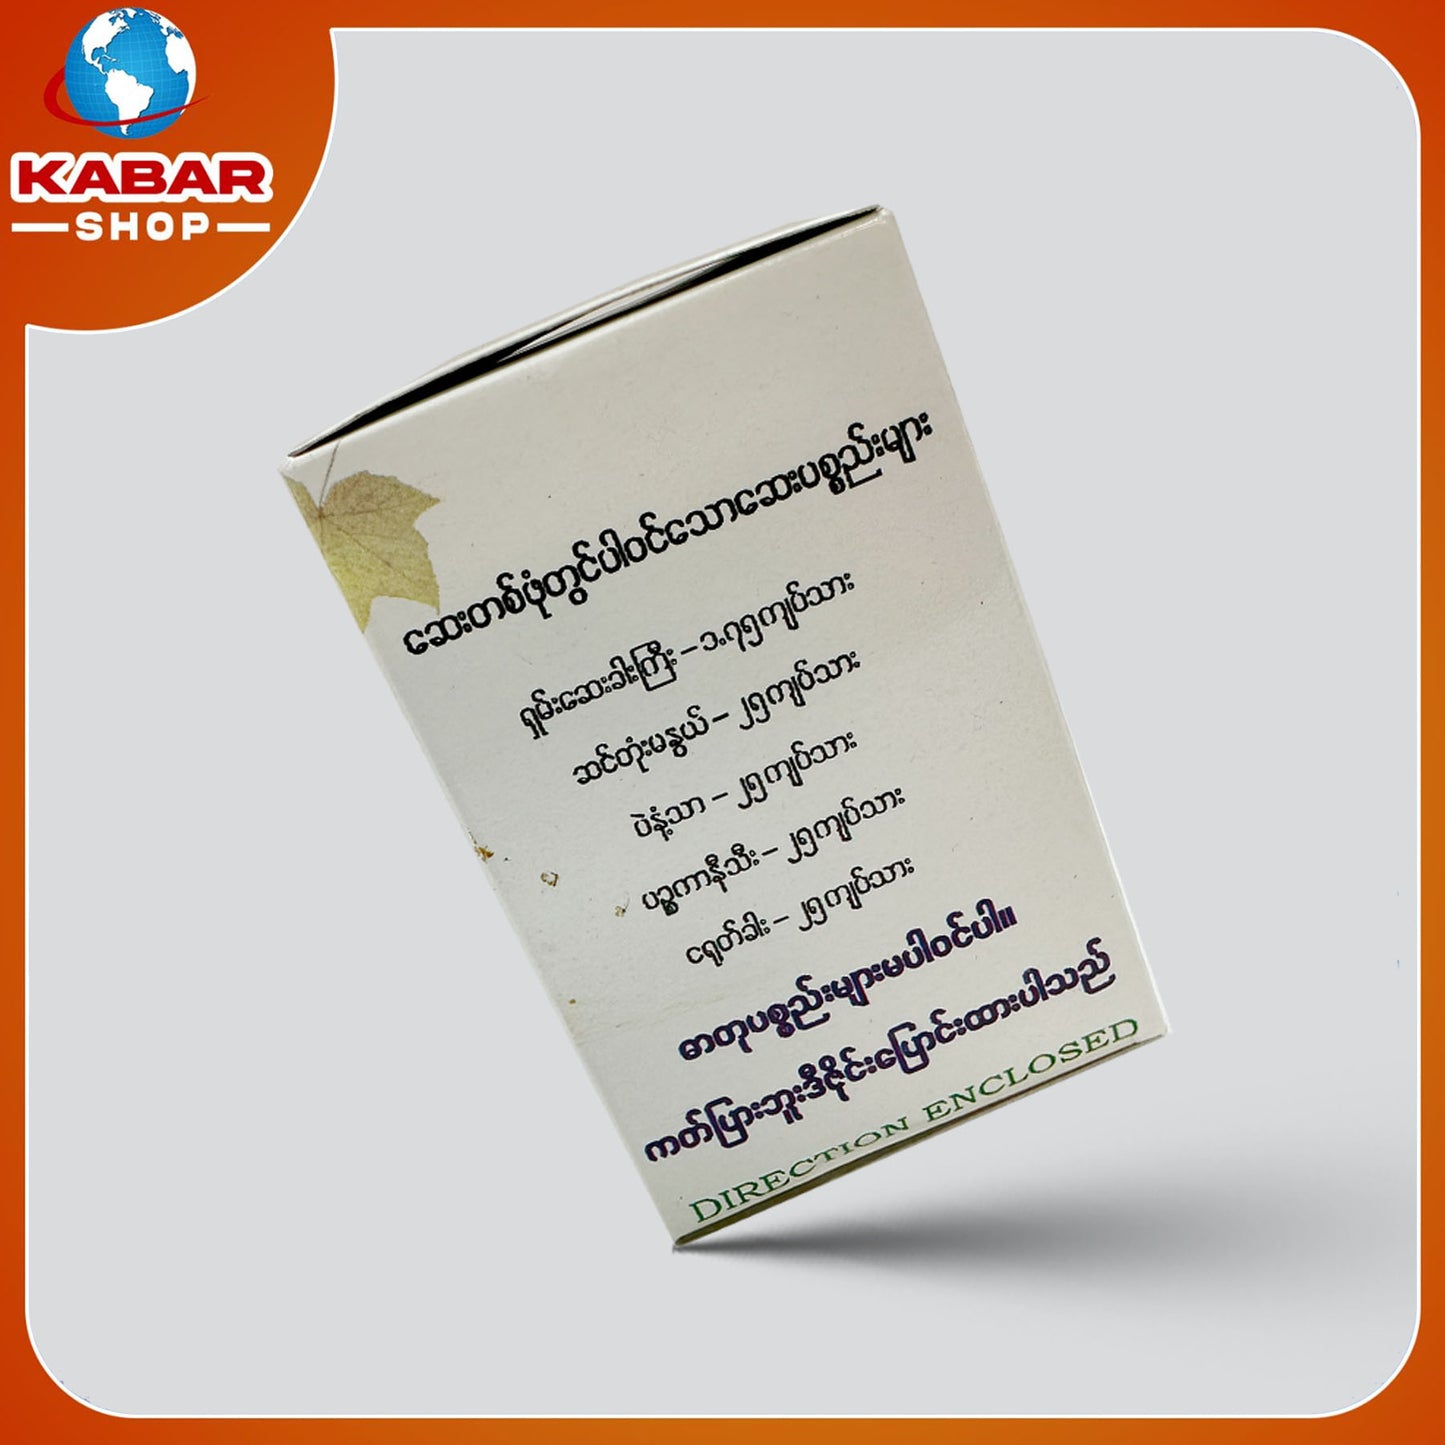 KABAR
SHOP
ဆေးတစ်ဖုံတွင်ပါဝင်သောဆေးပစ္စည်းများ
ရှမ်းဆေးခါးကြီး – ၁.၇၅ကျပ်သား
ဆင်တုံးမနွယ် – ၂၅ကျပ်သား
ပဲနံ့သာ – ၂၅ကျပ်သား
ပဥ္စကာနီသီး – ၂၅ကျပ်သား
ငရုတ်ခါး – ၂၅ကျပ်သား
ဓာတုပစ္စည်းများမပါဝင်ပါ။
ကတ်ပြားဘူးဒီဇိုင်းပြောင်းထားပါသည်
DIRECTION ENCLOSED